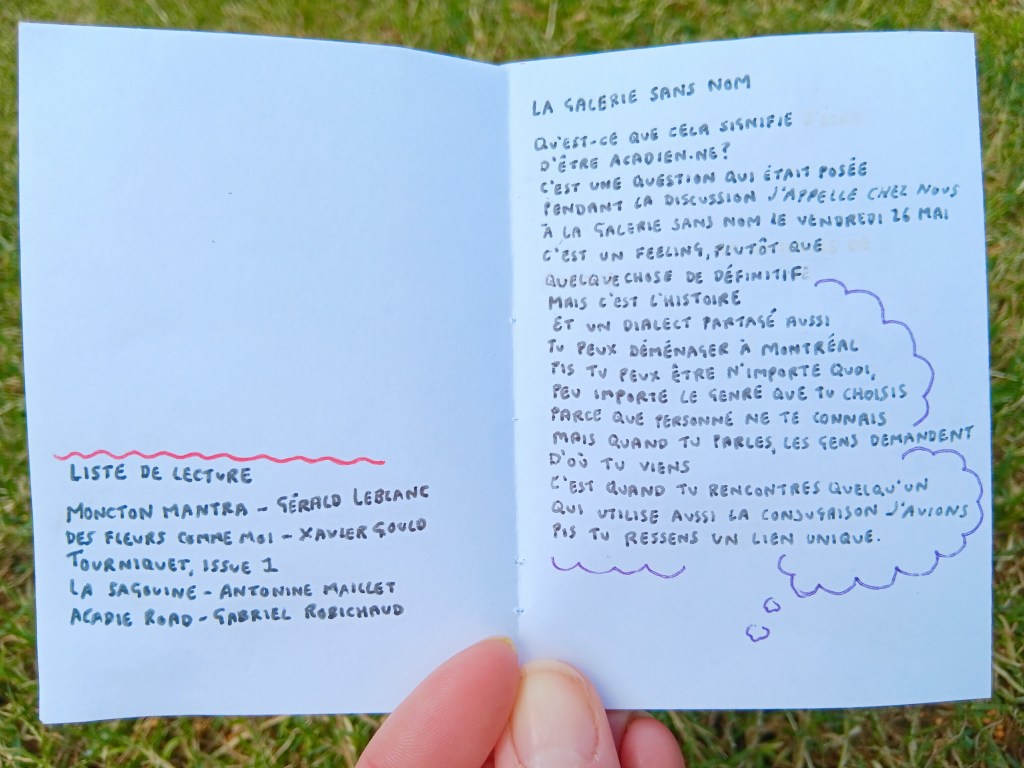 LISTE DE LECTURE
MONCTON MANTRA - GÉRALD LEBLANC
DES FLEURS COMME MOI - XAVIER GOULD
TOURNIQUET, ISSUE 1
LA SAGOUINE - ANTONINE MAILLET
ACADIE ROAD - GABRIEL ROBICHAUD
LA GALERIE SANS NOM
QU'EST-CE QUE CELA SIGNIFIE
D'ÊTRE ACADIEN.NE?
C'EST UNE QUESTION QUI ÉTAIT POSÉE
PENDANT LA DISCUSSION J'APPELLE CHEZ NOUS
À LA GALERIE SANS NOM LE VENDREDI 26 MAI
C'EST UN FEELING, PLUTÔT QUE
QUELQUECHOSE DE DÉFINITIF
MAIS C'EST L'HISTOIRE
ET UN DIALECT PARTAGÉ AUSSI
TU PEUX DÉMÉNAGER À MONTRÉAL
PIS TU PEUX ÊTRE N'IMPORTE QUOI,
PEU IMPORTE LE GENRE QUE TU CHOISIS
PARCE QUE PERSONNE NE TE CONNAIS
MAIS QUAND TU PARLES, LES GENS DEMANDENT
D'OÙ TU VIENS
C'EST QUAND TU RENCONTRES QUELQU'UN
QUI UTILISE AUSSI LA CONJUGAISON J'AVIONS
PIS TU RESSENS UN LIEN UNIQUE.